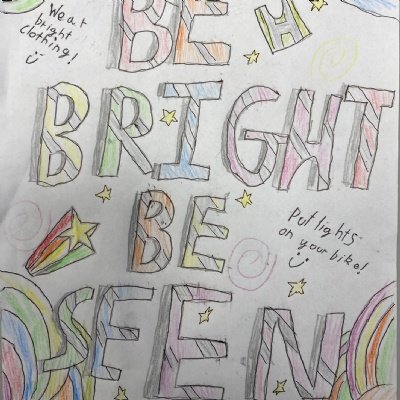 Wear
bright
clothing!
BE
BRIGHT
BE
Put lights
on your bike!
SEEN